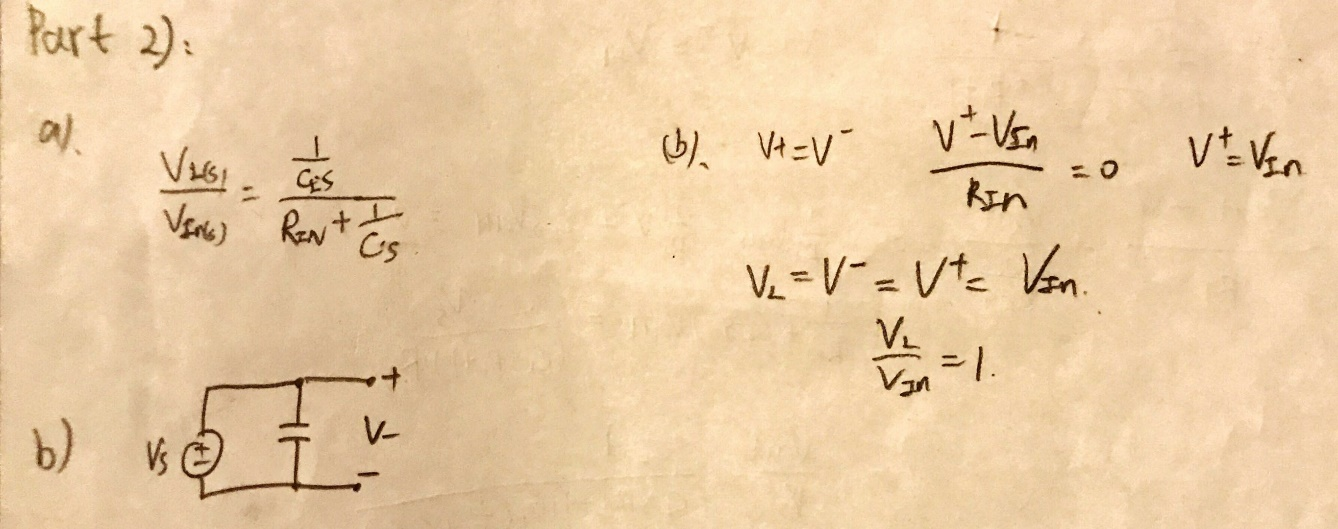 Part 2):
a).
V_L(s) / V_In(s) = (1 / C_L S) / (R_IN + 1 / C_L S)
(b). V+ = V^- (V^+ - V_In) / R_In = 0 V^+ = V_In
V_L = V^- = V^+ = V_In.
V_L / V_In = 1.
b) Vs + - + V- -